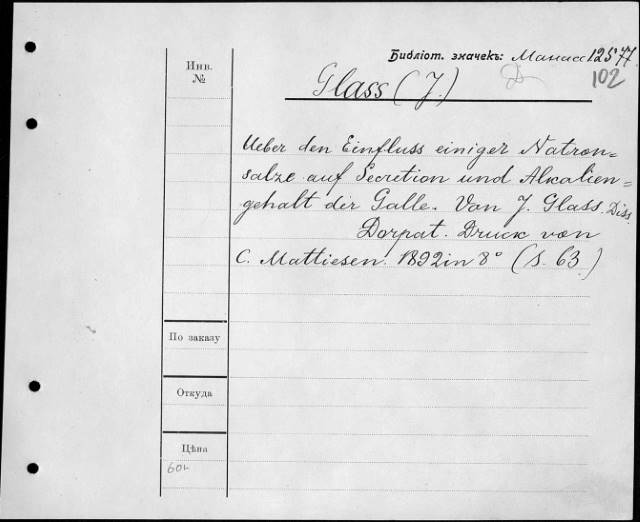 Библіот. значекъ: Манасс 12577
102
Инв.
№
Glass (J.)
Ueber den Einfluss einiger Natron=
salze auf Secretion und Alkalien=
gehalt der Galle. Von J. Glass. Diss.
Dorpat. Druck von
C. Mattiesen. 1892 in 8° (S. 63.)
По заказу
Откуда
Цѣна
60к